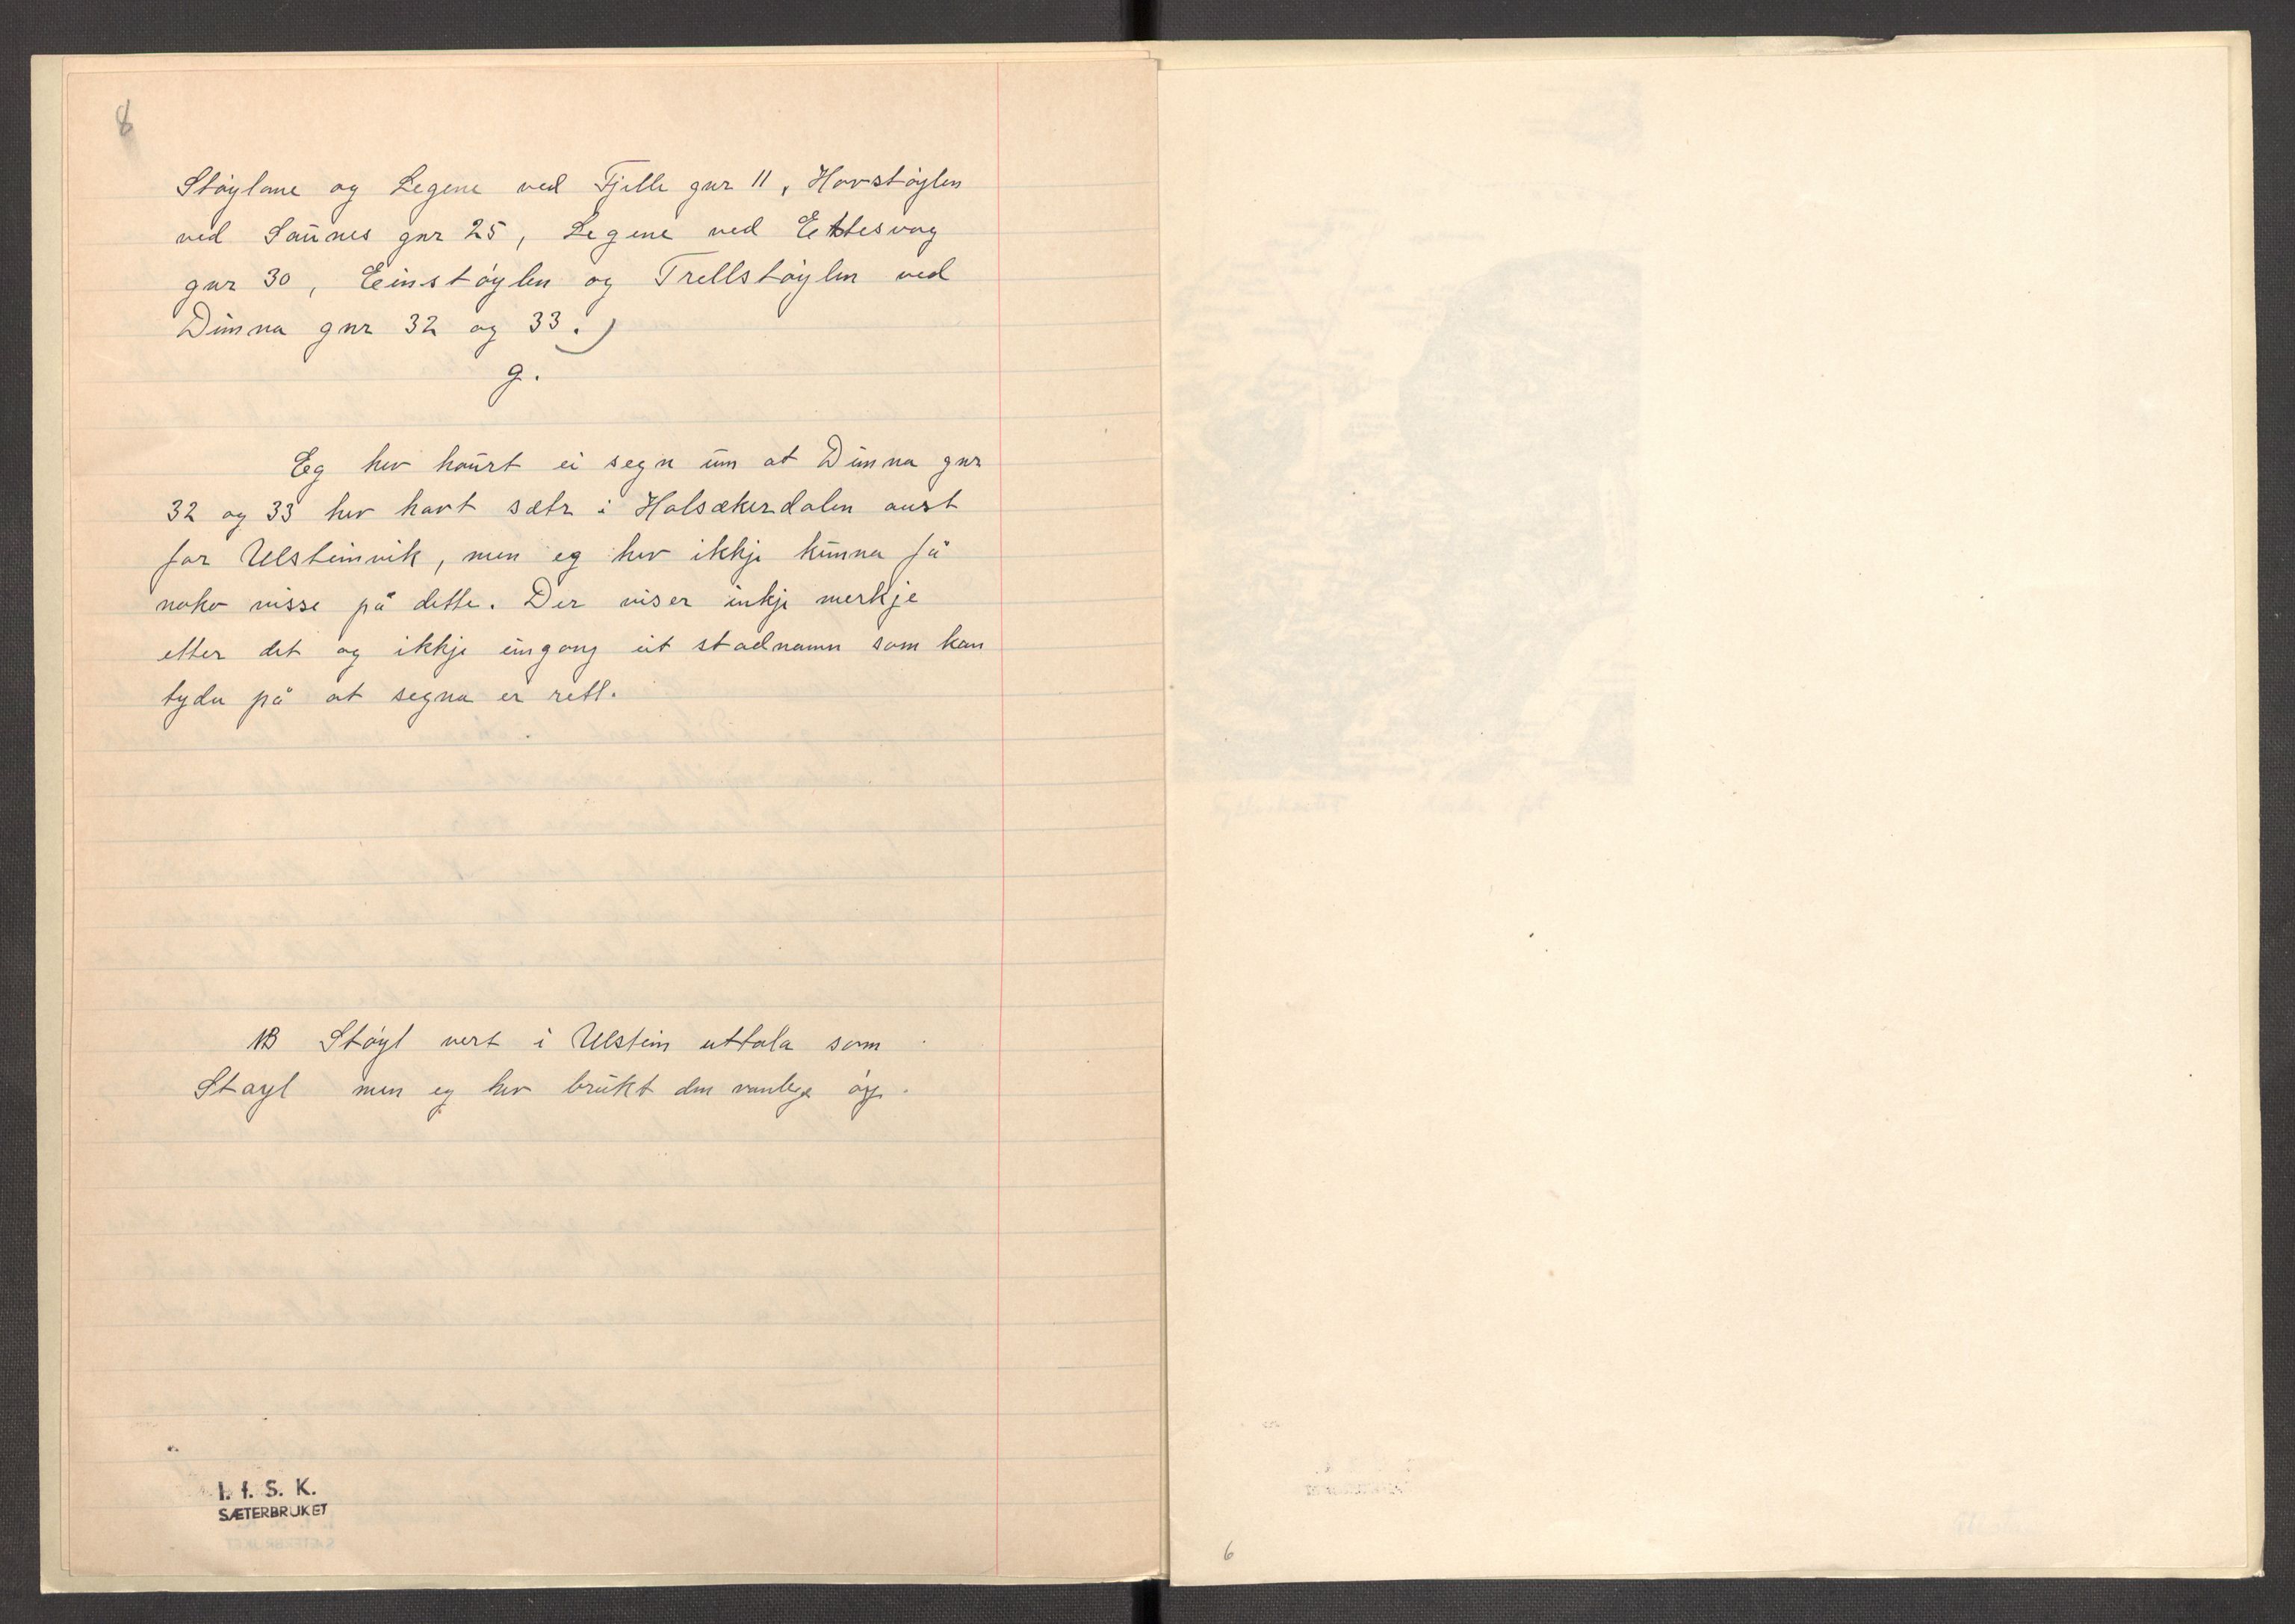 8
Støylane og Legene ved Fjelle gnr 11, Havstøylen
ved Saunes gnr 25, Legene ved Eiktesvåg
gnr 30, Einstøylen og Trellstøylen ved
Dimna gnr 32 og 33.)
g.
Eg hev høurt ei segn um at Dimna gnr
32 og 33 hev havt sætr i Holsækerdalen aust
for Ulsteinvik, men eg hev ikkje kunna få
noko visse på dette. Der viser inkje merkje
etter det og ikkje eingong eit stadnamn som kan
tyda på at segna er rett.
NB Støyl vert i Ulstein uttala som
Stayl men eg hev brukt den vanlege øy.
I. f. S. K.
SÆTERBRUKET
6